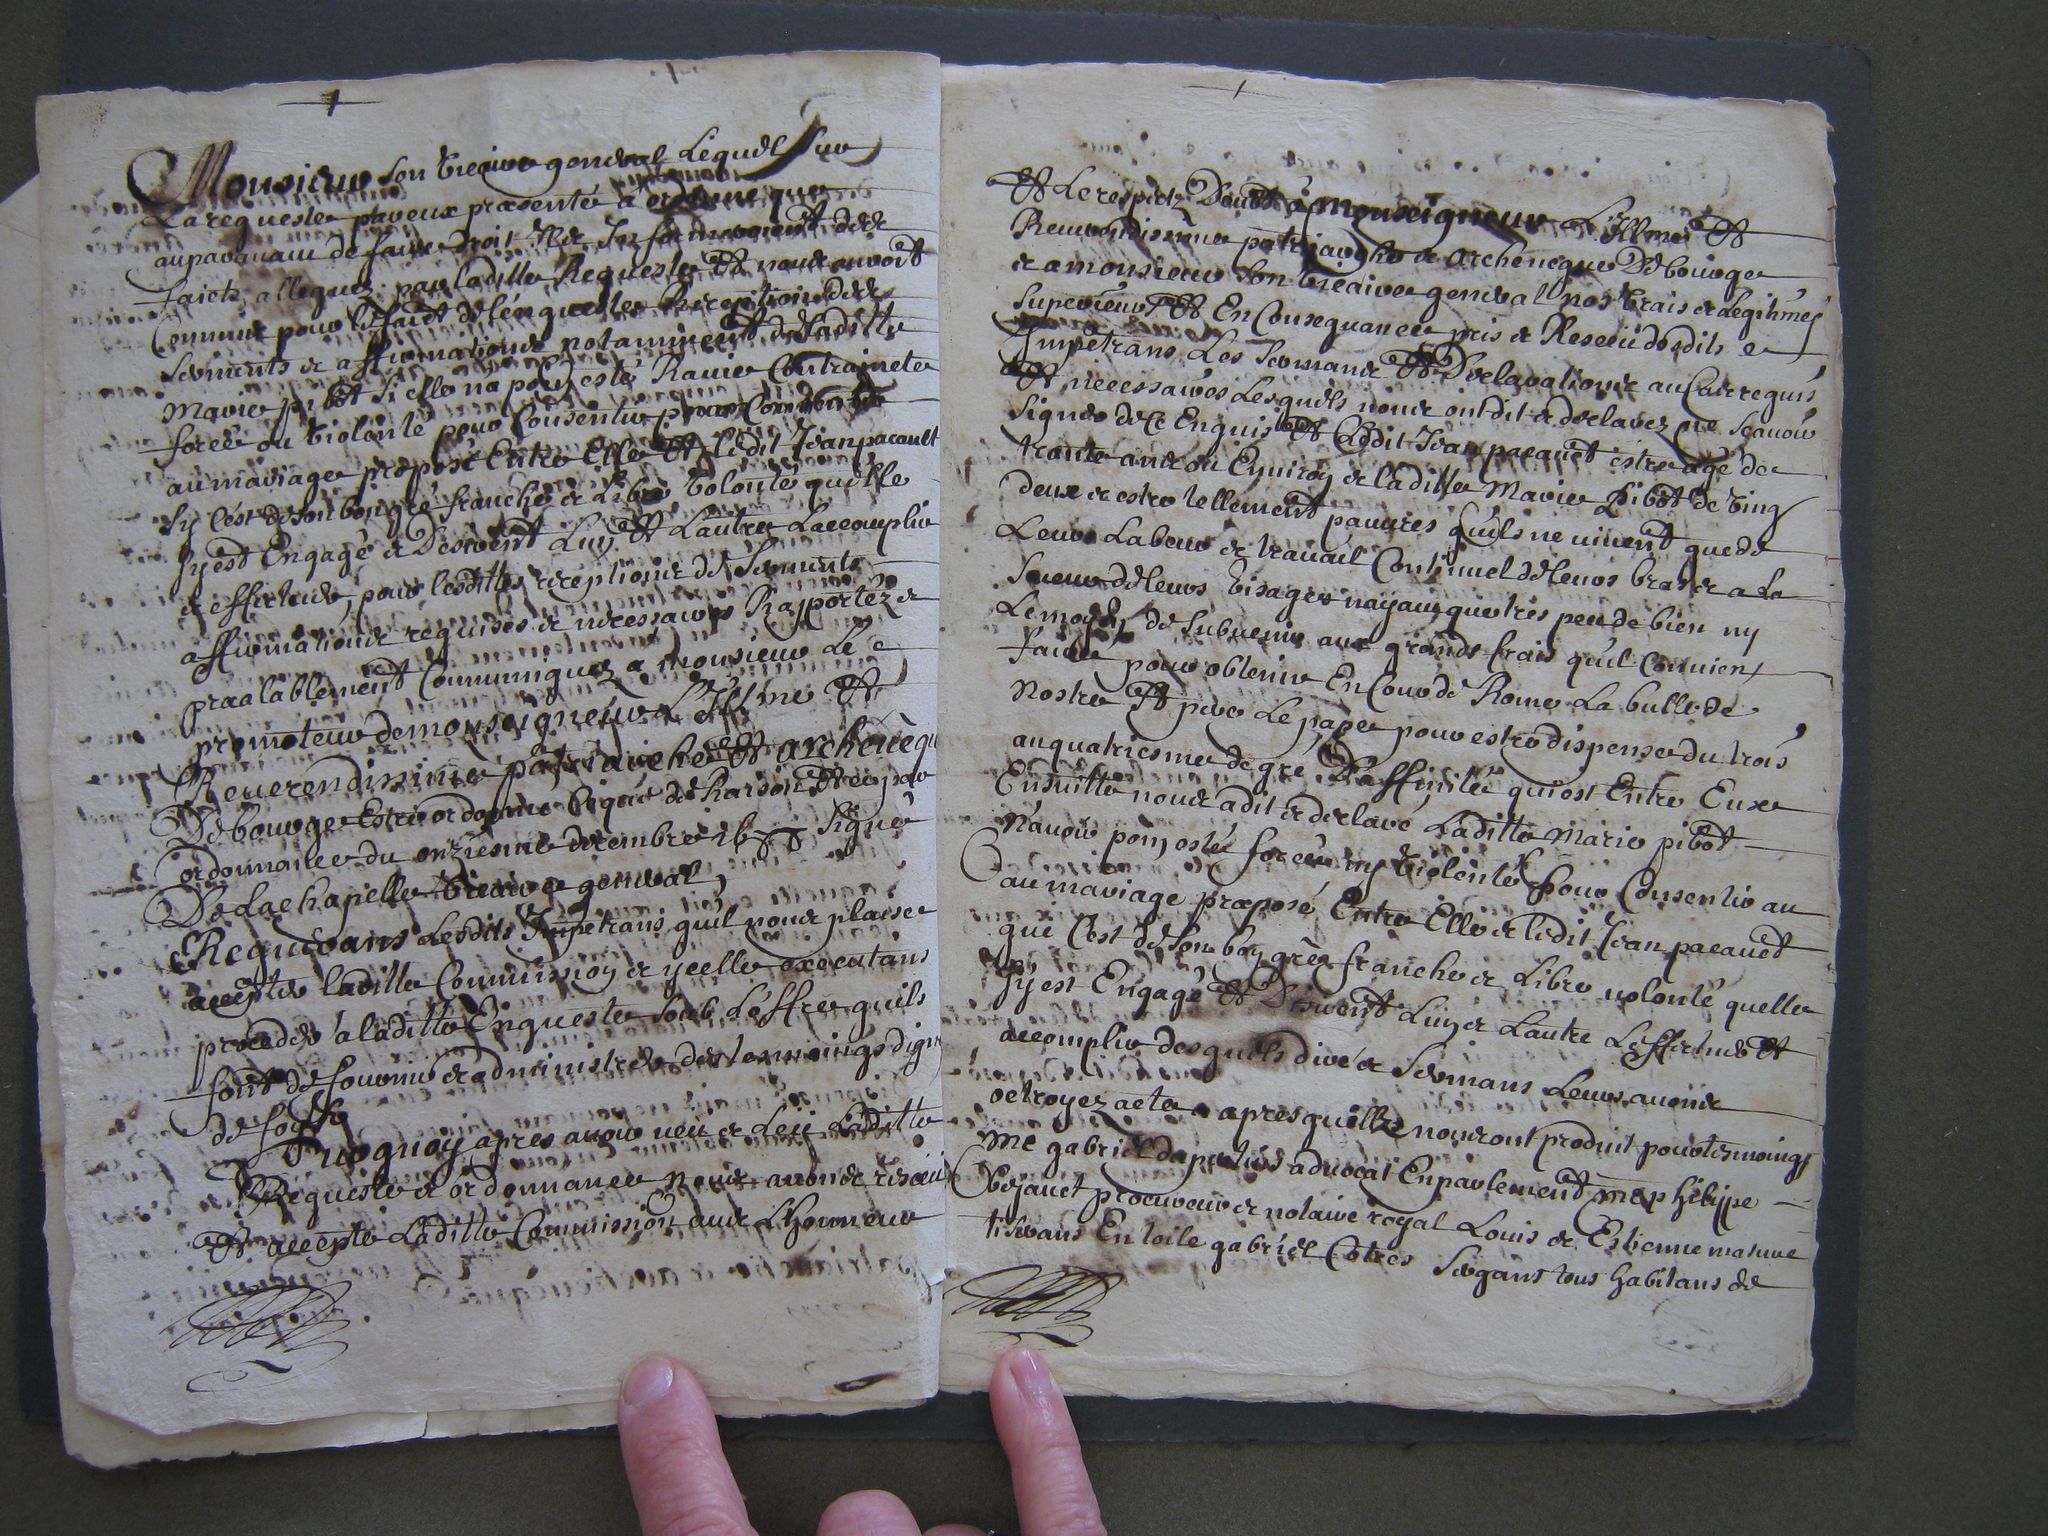 Monsieur son vicaire general Lequel sur
La requeste par eux præsenté a ordonné que
auparavant de faire droit Il se Informeroient des
faicts alleguez par laditte Requeste Et nous auroit
Commis pour le faict de lenqueste Reception des
serments et affirmations notamment de laditte
Marie pibot si elle na point esté Ravie Contrainte
forcée ou violenté pour Consentir
au mariage proposé Entre Elle Et ledit Jean pacault
sy Cest de son bon gré franche et Libre volonté quelle
sy est Engagé et Desirent Luy Et Lautre Laccomplir
et effectuer, pour lesdittes receptions de serments
affirmations requises et necessaires Raportez et
præalablement Communiquez a monsieur Le
promoteur de monseigneur L'Illme Et
Reverendissime patriarche Et archeuequ
De bourges Estre ordonné Ce que de Raison Ainsy par
ordonnance du onziesme decembre Signé
De Lachapelle vicaire general,
Requerans Lesdits Impetrans quil nous plaise
accepter laditte Commission et ycelle executans
proceder a laditte Enqueste soub L'offre quils
font de fournir et administrer des tesmoings dign
de foy
Surquoy, apres avoir veu et Leu Laditte
Requeste et ordonnance nous auons reseu
Et accepté Laditte Commission auec L'honneur
Et Le respect Deubt a monseigneur L'Illme Et
Reuerendissime patriarche et archeueque De bourges
et a monsieur son vicaire general nos vrais et Legitimes
superieurs Et En Consequance pris et Reseu desdits
Impetrans Les sermans Et Declarations au Cas requis
Et necessaires Lesquels nous ont dit et declarez ne scauoir
signer de Ce Enquis Et Ledit Jean pacault estre agé de
trante ans ou Enuiron et laditte Marie Pibot de ving
deux et estre tellement pauures quils ne viuent que de
Leurs Labeur et trauail Continuel de leurs bras et a La
sueur de leurs visages nayans que tres peu de bien ny
Le moyen de subuenir aux grands frais quil Conuient
faire pour obtenir En Cour de Rome La bulle de
nostre St pere Le pape pour estre dispensé du trois
au quatriesme degré D'affinitée qui est Entre Eux
Ensuitte nous a dit et declaré Laditte Marie pibot
n'auoir poin esté forcée ny violenté pour Consentir au
au mariage proposé Entre Elle et ledit Jean pacault
que Cest de son bon gré franche et Libre volonté quelle
sy est Engagé Et Desirent Luy et Lautre Leffectuer Et
accomplir desquels dire et sermans Leurs auons
octroyez acte apres quoy nous ont produit pour tesmoings
Me gabriel advocat En parlement Me philippe
procureur et notaire royal Louis et Estienne mature
tisserans En toile gabriel Cotres sergans tous habitans de